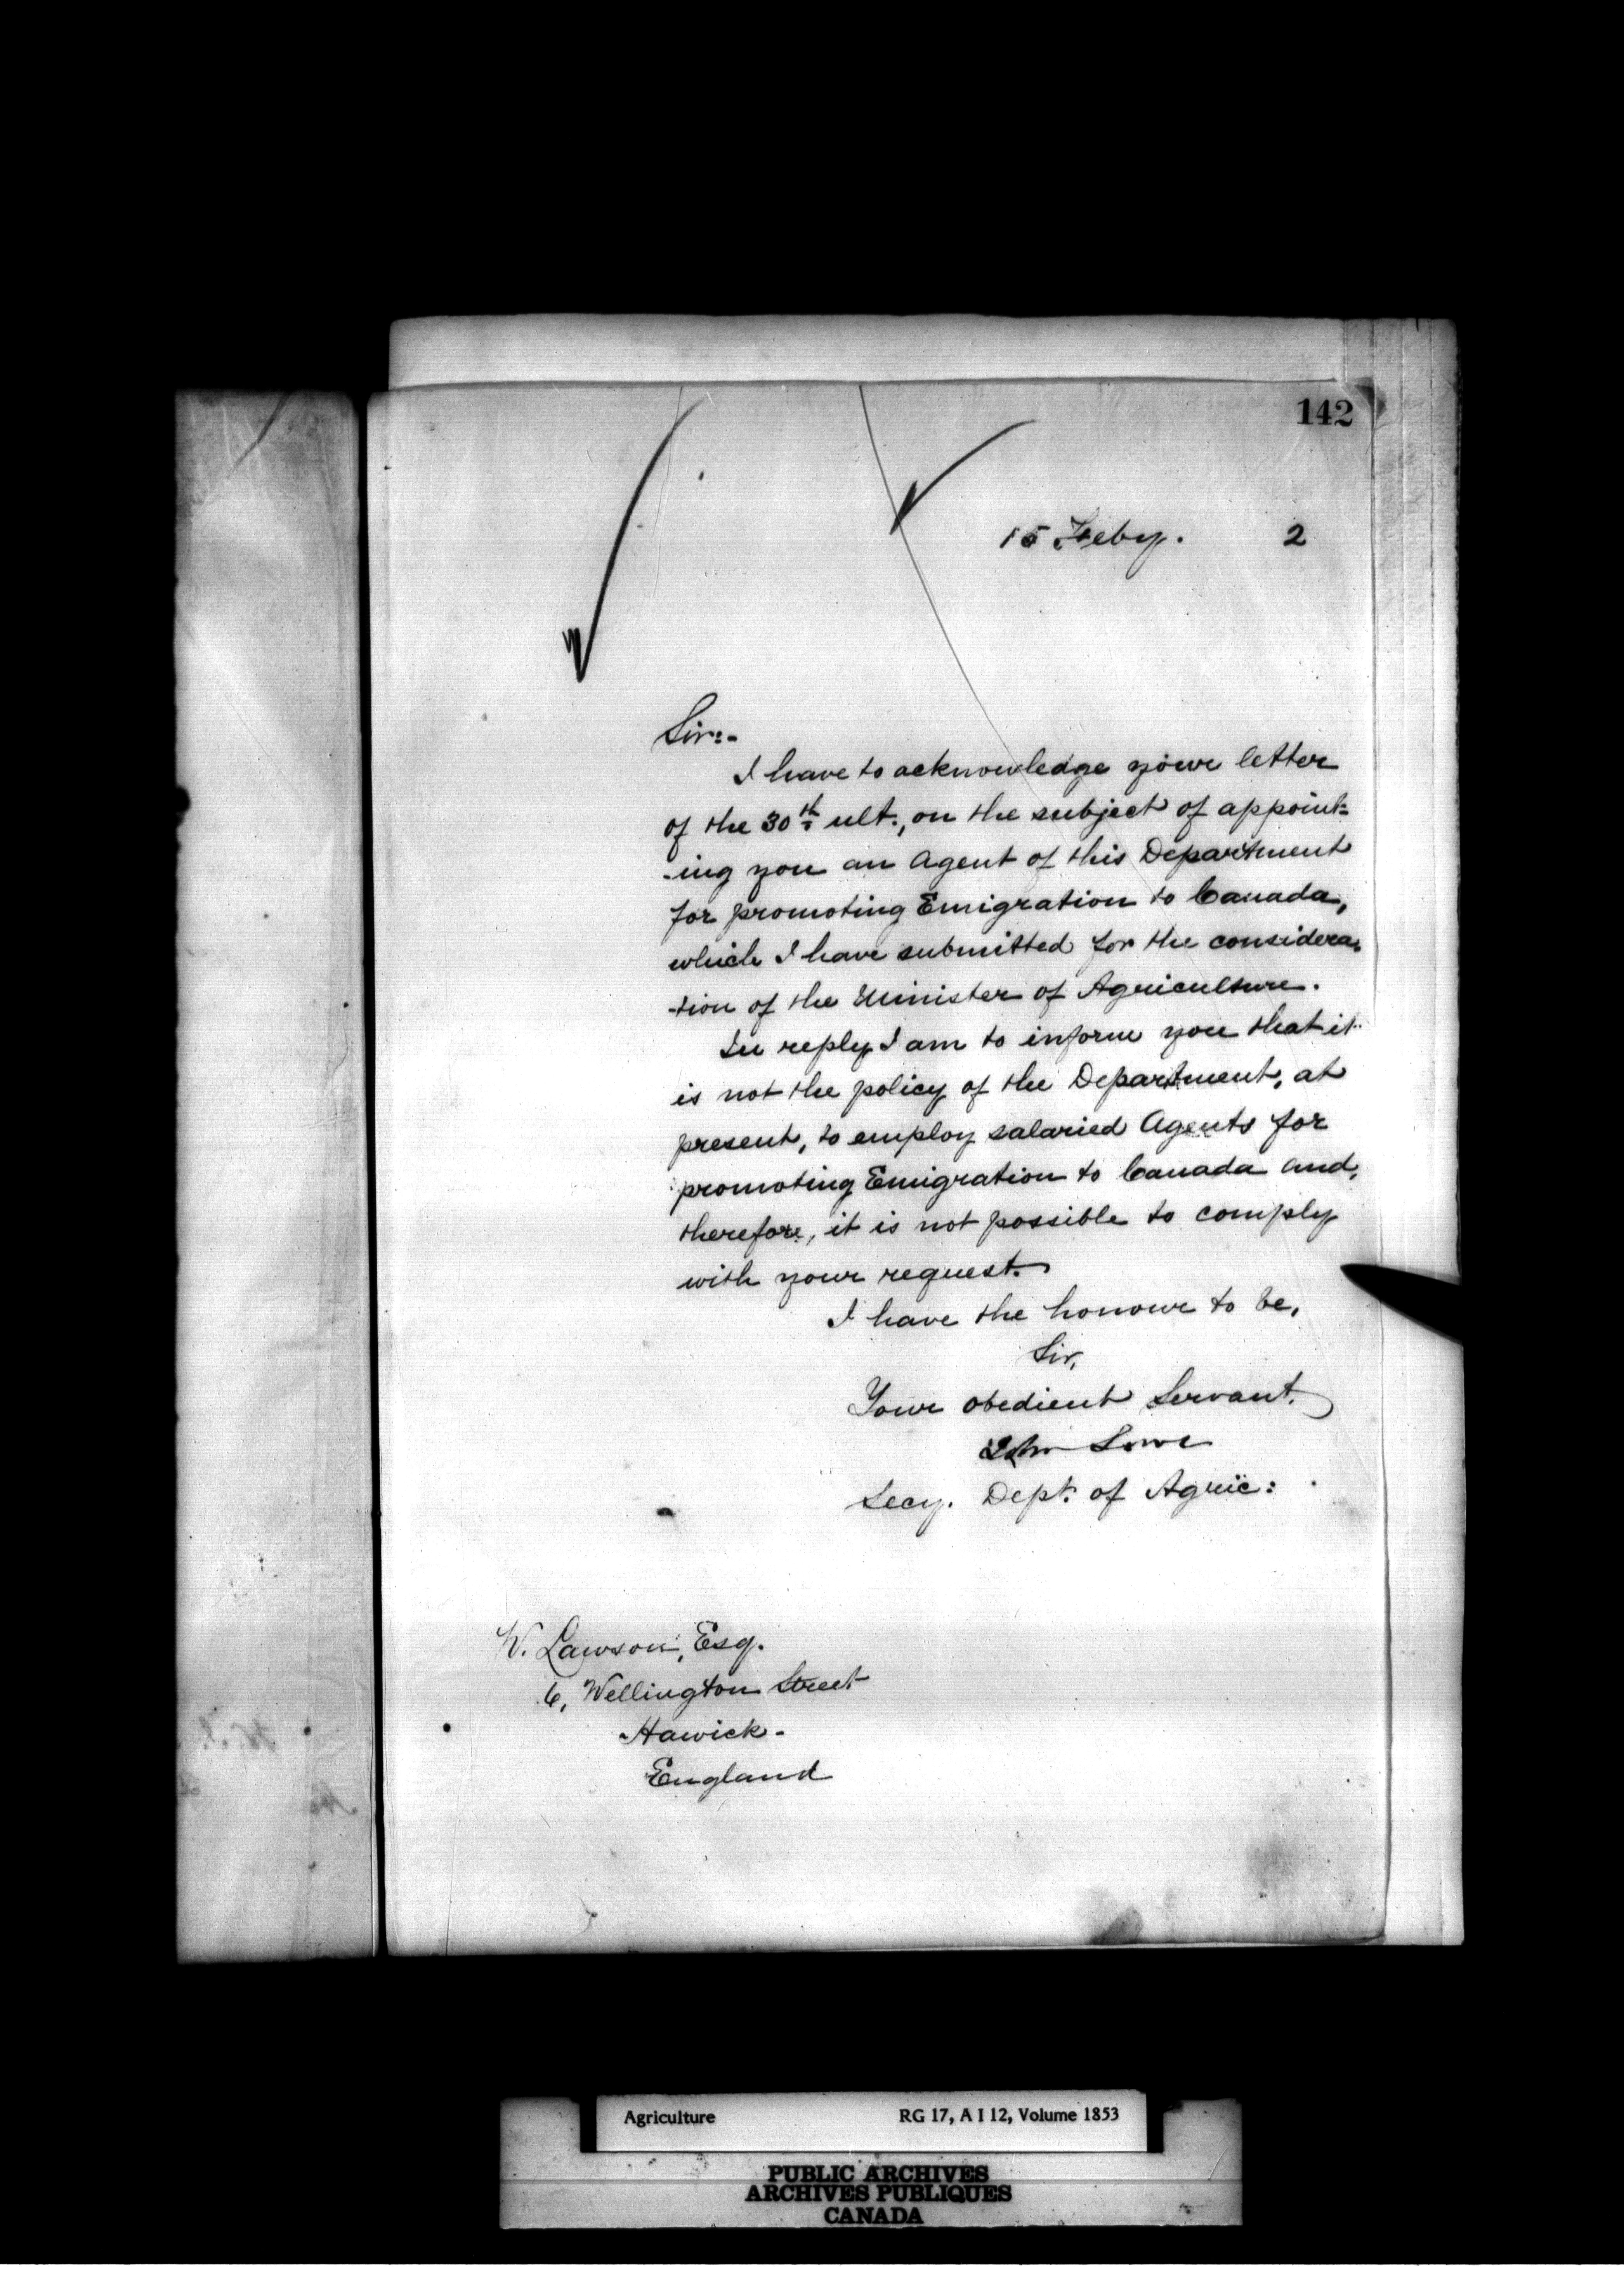 142
15 Feby. 2
Sir:-
I have to acknowledge your letter
of the 30th ult., on the subject of appoint-
-ing you an Agent of this Department
for promoting Emigration to Canada,
which I have submitted for the considera-
-tion of the Minister of Agriculture.
In reply I am to inform you that it
is not the policy of the Department, at
present, to employ salaried Agents for
promoting Emigration to Canada and,
therefore, it is not possible to comply
with your request.
I have the honour to be,
Sir,
Your obedient Servant.
John Lowe
Secy. Dept. of Agric:
W. Lawson, Esq.
6, Wellington Street
Hawick-
England
Agriculture RG 17, A I 12, Volume 1853
PUBLIC ARCHIVES
ARCHIVES PUBLIQUES
CANADA